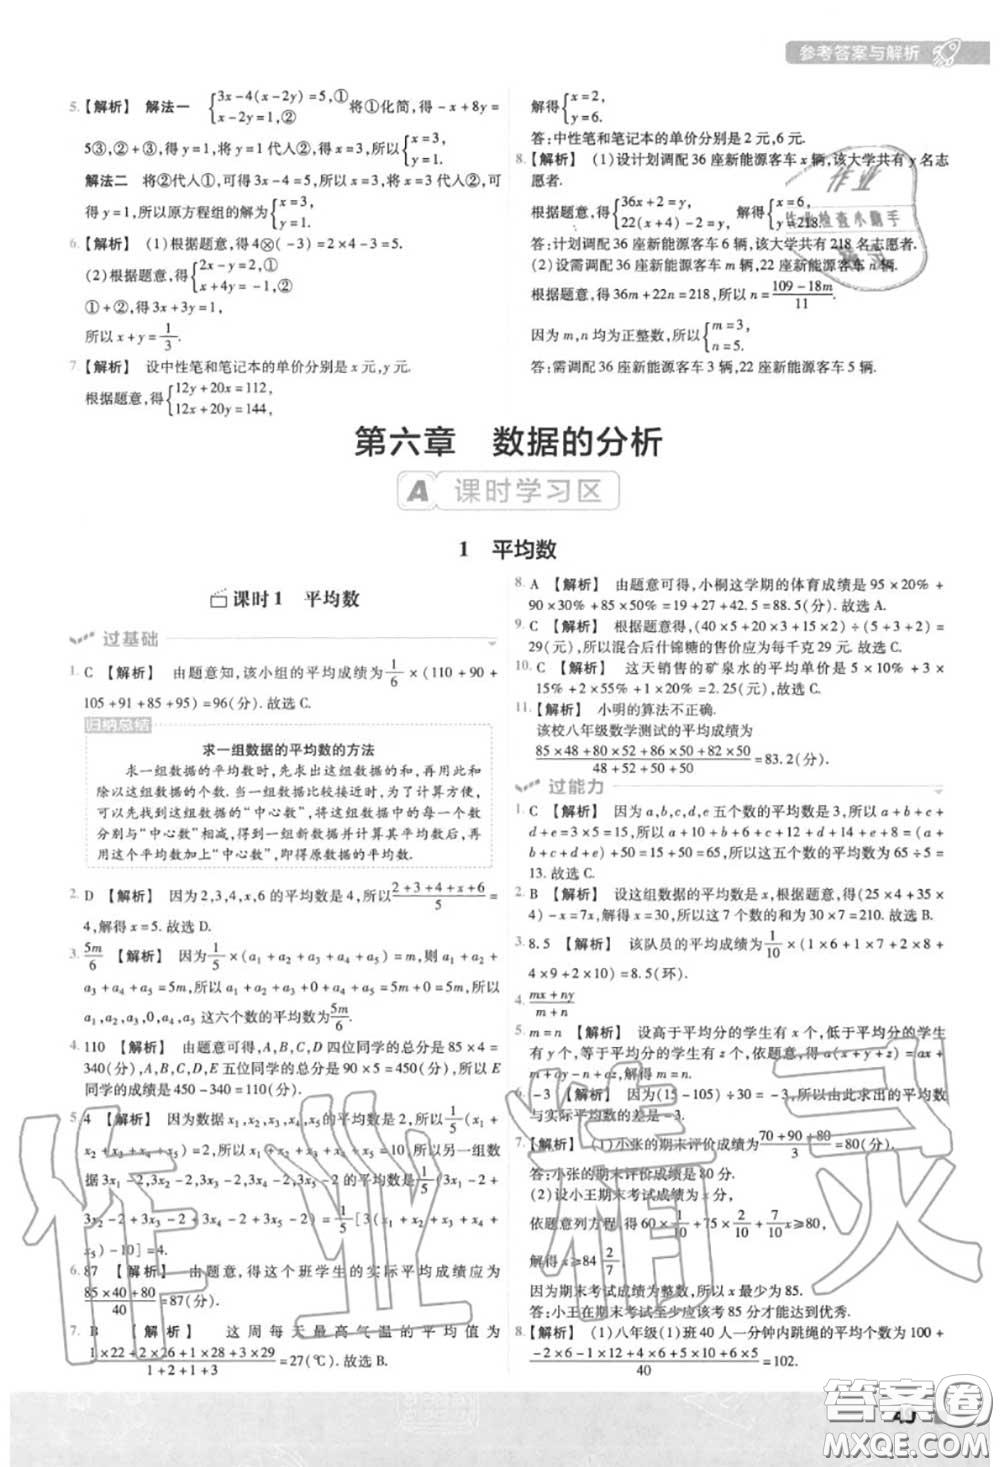 参考答案与解析
5.【解析】 解法一 {3x-4(x-2y)=5,① x-2y=1,② 将①化简,得-x+8y=
5③,②+③,得 y=1,将 y=1代入②,得 x=3,所以{x=3, y=1.
解法二 将②代入①,可得3x-4=5,所以x=3,将x=3代入②,
得y=1,所以原方程组的解为{x=3, y=1.
6.【解析】 (1)根据题意,得4⊗(-3)=2×4-3=5.
(2)根据题意,得{2x-y=2,① x+4y=-1,②
①+②,得3x+3y=1,
所以x+y=1/3.
7.【解析】 设中性笔和笔记本的单价分别是x元,y元.
根据题意,得{12y+20x=112, 12x+20y=144,
解得{x=2, y=6.
答:中性笔和笔记本的单价分别是2元,6元.
8.【解析】 (1)设计划调配36座新能源客车x辆,该大学共有y名志
愿者.
根据题意,得{36x+2=y, 22(x+4)-2=y, 解得{x=6, y=218.
答:计划调配36座新能源客车6辆,该大学共有218名志愿者.
(2)设需调配36座新能源客车m辆,22座新能源客车n辆.
根据题意,得36m+22n=218,所以n=(109-18m)/11
因为m,n均为正整数,所以{m=3, n=5.
答:需调配36座新能源客车3辆,22座新能源客车5辆.
第六章 数据的分析
A 课时学习区
1 平均数
课时1 平均数
过基础
1. C 【解析】 由题意知,该小组的平均成绩为1/6×(110+90+
105+91+85+95)=96(分).故选C.
归纳总结
求一组数据的平均数的方法
求一组数据的平均数时,先求出这组数据的和,再用此和
除以这组数据的个数.当一组数据较大时,为了计算方便,
可以先找到这组数据的“中心数”,将这组数据中的每一个数
分别与“中心数”相减,得到一组新数据并计算其平均数后,再
用这个平均数加上“中心数”,即得原数据的平均数.
2. D 【解析】 因为2,3,4,x,6的平均数是4,所以(2+3+4+x+6)/5=
4,解得x=5.故选D.
3. 5m/6 【解析】 因为1/5×(a₁+a₂+a₃+a₄+a₅)=m,则a₁+a₂+
a₃+a₄+a₅=5m,所以a₁+a₂+a₃+0+a₄+a₅=5m,所以
a₁,a₂,a₃,0,a₄,a₅这六个数的平均数为5m/6.
4. 110 【解析】 由题意可得,A,B,C,D四位同学的总成绩是85×4=
340(分),A,B,C,D,E五位同学的总成绩是90×5=450(分),所以E
同学的成绩是450-340=110(分).
5. 4 【解析】 因为数据x₁,x₂,x₃,x₄,x₅的平均数是2,所以1/5(x₁+
x₂+x₃+x₄+x₅)=2,所以x₁+x₂+x₃+x₄+x₅=10,所以另一组数
据3x₁-2,3x₂-2,3x₃-2,3x₄-2,3x₅-2的平均数是1/5(3x₁-2+
3x₂-2+3x₃-2+3x₄-2+3x₅-2)=1/5[3(x₁+x₂+x₃+x₄+
x₅)-10]=4.
6. 87 【解析】 由题意,得这个班学生的实际平均成绩应为
(85×40+80)/40=87(分).
7. B 【解析】 这周每天最高气温的平均值为
(1×22+2×26+1×28+3×29)/(1+2+1+3)=27(℃).故选B.
8. A 【解析】 由题意可得,小桐这学期的体育成绩是95×20%+
90×30%+85×50%=19+27+42.5=88.5(分).故选A.
9. C 【解析】 根据题意,得(40×5+20×3+15×2)÷(5+3+2)=
29(元),所以混合后什锦糖的售价应为每千克29元.故选C.
10. C 【解析】 这天销售的矿泉水的平均单价是5×10%+3×
15%+2×55%+1×20%=2.25(元),故选C.
11.【解析】 小明的算法不正确.
该校八年级数学测试的平均成绩为
(85×48+80×52+86×50+82×50)/(48+52+50+50)=83.2(分).
过能力
1. C 【解析】 因为a,b,c,d,e五个数的平均数是3,所以a+b+c+
d+e=3×5=15,所以a+10+b+6+c+12+d+14+e+8=(a+
b+c+d+e)+50=15+50=65,所以这五个数的平均数为65÷5=
13.故选C.
2. B 【解析】 设这组数据的平均数是x,根据题意,得(25×4+35×
4)-x=7x,解得x=30,所以这7个数的和为30×7=210.故选B.
3. 8.5 【解析】 该队员的平均成绩为1/10×(1×6+1×7+2×8+
4×9+2×10)=8.5(环).
4. (mx+ny)/(m+n)
5. m=n 【解析】 设高于平均分的学生有x个,低于平均分的学生
有y个,等于平均分的学生有z个.依题意,得a(x+y+z)=ax+
mx+ay-ny+az,解得m=n.
6. -3 【解析】 因为(15-105)÷30=-3,所以由此求出的平均数
与实际平均数的差是-3.
7.【解析】 (1)小张的期末评价成绩为(70+90+80)/3=80(分).
答:小张的期末评价成绩是80分.
(2)设小王期末考试成绩为x分,
依题意列方程,得60×1/10+75×2/10+7/10x≥80,
解得x≥84 2/7.
因为期末考试成绩都是整数,所以x最少为85.
答:小王在期末考试至少应该考85分才能达到优秀.
8.【解析】 (1)八年级(1)班40人一分钟内跳绳的平均个数为100+
(-2×6-1×12+0×1+4×6+5×10+6×5)/40=102.
49
作业
作业检查小助手
作业精灵
答案圈
MXQE.COM